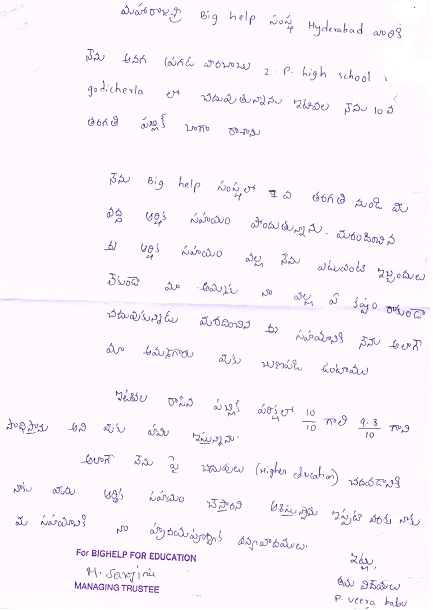 మహారాజశ్రీ Big help సంస్థ Hyderabad వారికి
నేను అనగా ప్రగడ వీరబాబు Z.P. high school
godicherla లో చదువుతున్నాను ఇటీవల నేను 10 వ
తరగతి పబ్లిక్ బాగా రాశాను
నేను Big help సంస్థలో 7 వ తరగతి నుండి మీ
వద్ద ఆర్థిక సహాయం పొందుతున్నాను. మీరందించిన
ఈ ఆర్థిక సహాయం వల్ల నేను ఎటువంటి ఇబ్బందులు
లేకుండా మా అమ్మకు నా వల్ల ఏ కష్టం రాకుండా
చదువుకున్నాడు మీరందించిన ఈ సహాయానికి నేను అలాగే
మా అమ్మగారు మీకు ఋణపడి ఉంటాము
ఇటీవల రాసిన పబ్లిక్ పరీక్షలో 10/10 గానీ 9.8/10 గానీ
సాధిస్తాను అని మీకు హామి ఇస్తున్నాను.
అలాగే నేను పై చదువులు (Higher education) చదవడానికి
నాకు మీరు ఆర్థిక సహాయం చేస్తారని ఆశిస్తున్నాను ఇప్పటి వరకు నాకు
మీ సహాయానికి నా హృదయపూర్వక ధన్యవాదములు.
ఇట్లు,
తమ విధేయుడు
P veera babu
For BIGHELP FOR EDUCATION
MANAGING TRUSTEE